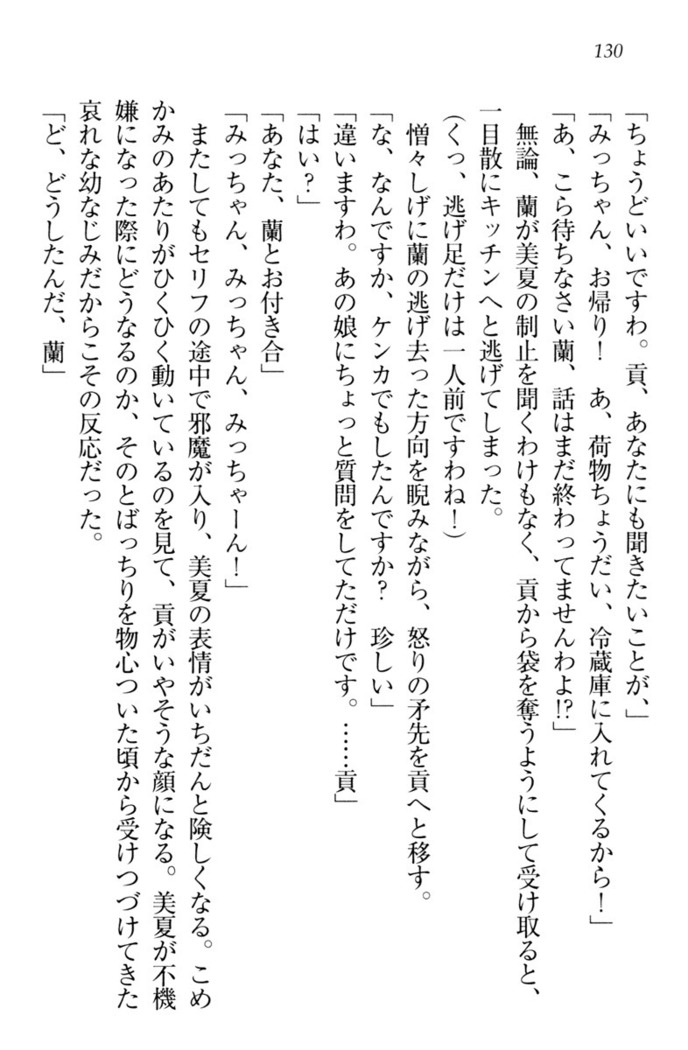 130
「ちょうどいいですわ。貢、あなたにも聞きたいことが、」
「みっちゃん、お帰り！　あ、荷物ちょうだい、冷蔵庫に入れてくるから！」
「あ、こら待ちなさい蘭、話はまだ終わってませんわよ!?」
　無論、蘭が美夏の制止を聞くわけもなく、貢から袋を奪うようにして受け取ると、
一目散にキッチンへと逃げてしまった。
（くっ、逃げ足だけは一人前ですわね！）
　憎々しげに蘭の逃げ去った方向を睨みながら、怒りの矛先を貢へと移す。
「な、なんですか、ケンカでもしたんですか？　珍しい」
「違いますわ。あの娘にちょっと質問をしてただけです。……貢」
「はい？」
「あなた、蘭とお付き合」
「みっちゃん、みっちゃん、みっちゃーん！」
　またしてもセリフの途中で邪魔が入り、美夏の表情がいちだんと険しくなる。こめ
かみのあたりがひくひく動いているのを見て、貢がいやそうな顔になる。美夏が不機
嫌になった際にどうなるのか、そのとばっちりを物心ついた頃から受けつづけてきた
哀れな幼なじみだからこその反応だった。
「ど、どうしたんだ、蘭」